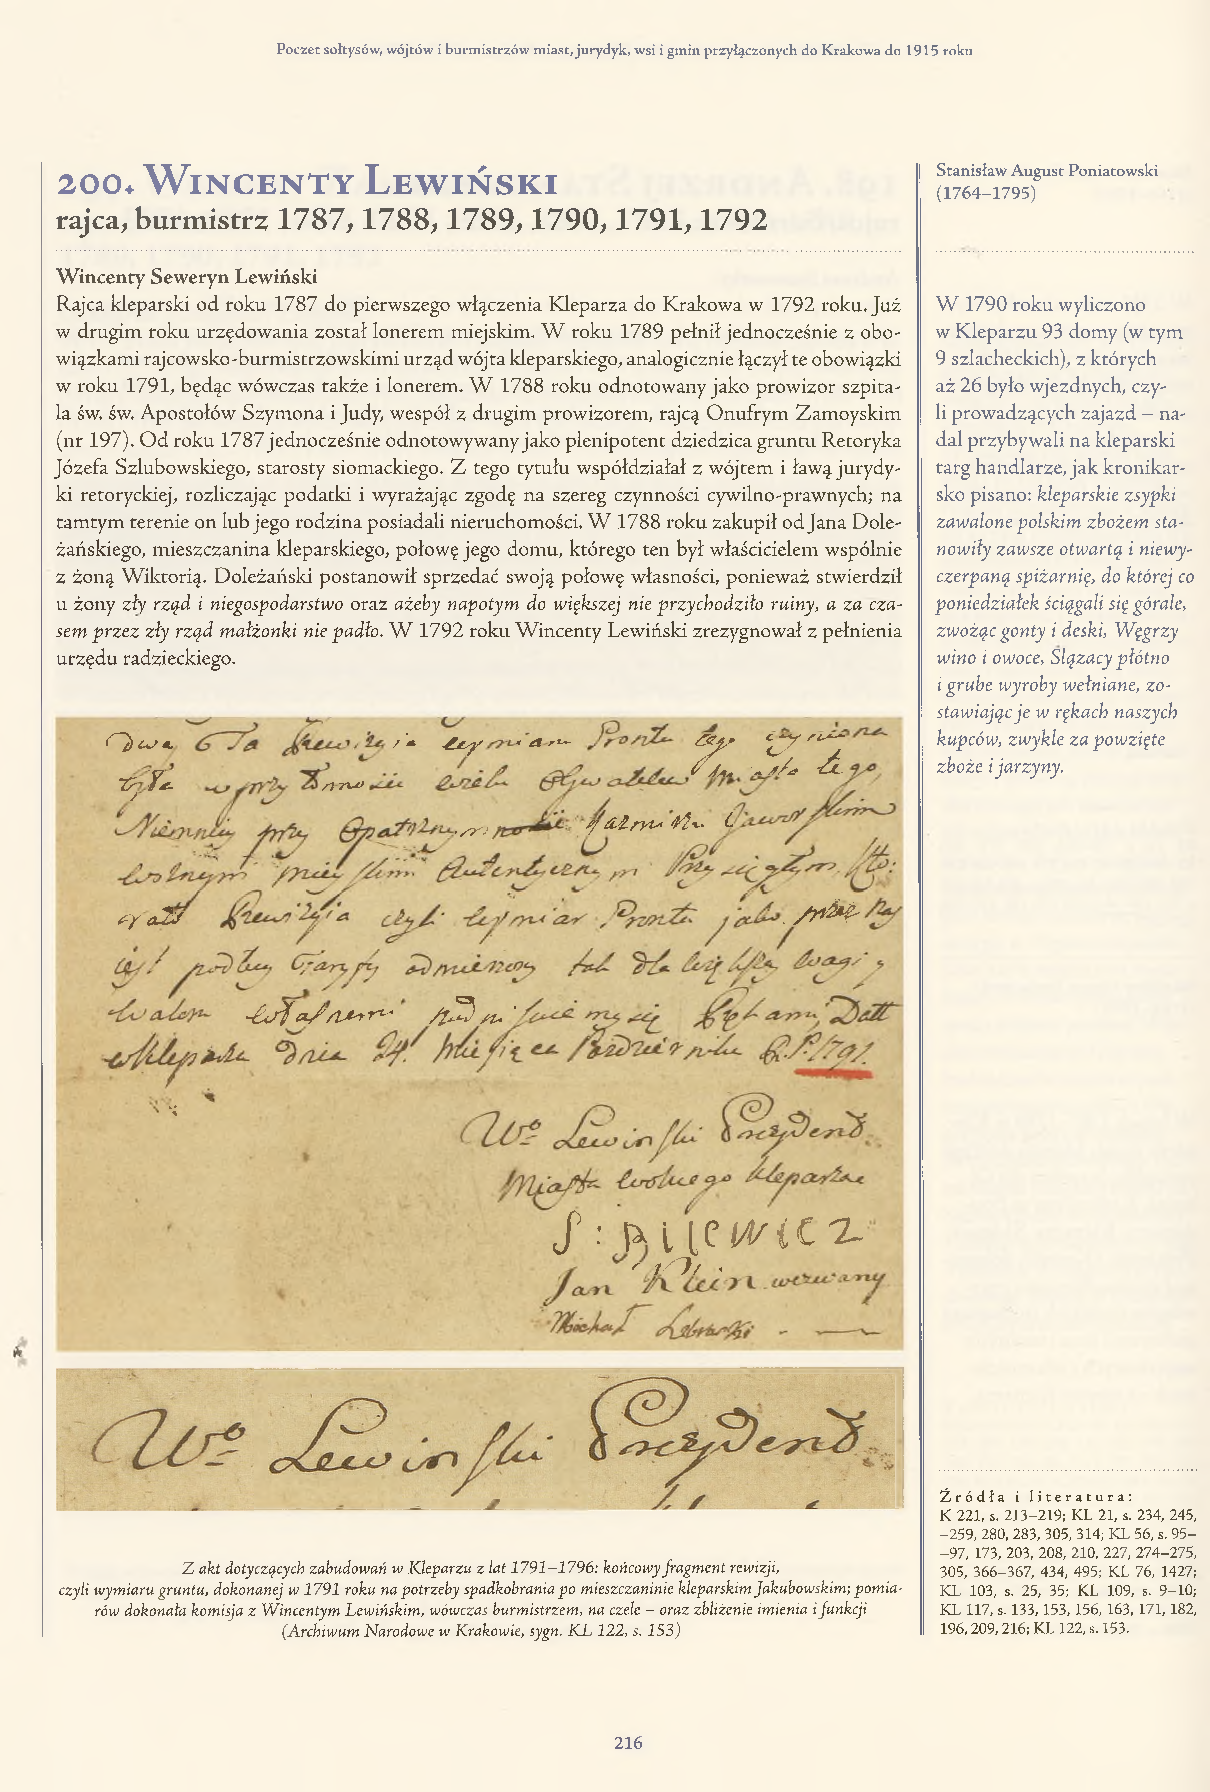 Poczet sołtysów, wójtów i burmistrzów miast, jurydyk, wsi i gmin przyłączonych do Krakowa do 1915 roku
200. Wincenty Lewiński
rajca, burmistrz 1787, 1788, 1789, 1790, 1791, 1792
Wincenty Seweryn Lewiński
Rajca kleparski od roku 1787 do pierwszego włączenia Kleparza do Krakowa w 1792 roku. Już
w drugim roku urzędowania został lonerem miejskim. W roku 1789 pełnił jednocześnie z obo-
wiązkami rajcowsko-burmistrzowskimi urząd wójta kleparskiego, analogicznie łączył te obowiązki
w roku 1791, będąc wówczas także i lonerem. W 1788 roku odnotowany jako prowizor szpita-
la św. św. Apostołów Szymona i Judy, wespół z drugim prowizorem, rajcą Onufrym Zamoyskim
(nr 197). Od roku 1787 jednocześnie odnotowywany jako plenipotent dziedzica gruntu Retoryka
Józefa Szlubowskiego, starosty siomackiego. Z tego tytułu współdziałał z wójtem i ławą jurydy-
ki retoryckiej, rozliczając podatki i wyrażając zgodę na szereg czynności cywilno-prawnych; na
tamtym terenie on lub jego rodzina posiadali nieruchomości. W 1788 roku zakupił od Jana Dole-
żańskiego, mieszczanina kleparskiego, połowę jego domu, którego ten był właścicielem wspólnie
z żoną Wiktorią. Doleżański postanowił sprzedać swoją połowę własności, ponieważ stwierdził
u żony zły rząd i niegospodarstwo oraz ażeby napotym do większej nie przychodziło ruiny, a za cza-
sem przez zły rząd małżonki nie padło. W 1792 roku Wincenty Lewiński zrezygnował z pełnienia
urzędu radzieckiego.
Stanisław August Poniatowski
(1764–1795)
W 1790 roku wyliczono
w Kleparzu 93 domy (w tym
9 szlacheckich), z których
aż 26 było wjezdnych, czy-
li prowadzących zajazd – na-
dal przybywali na kleparski
targ handlarze, jak kronikar-
sko pisano: kleparskie zsypki
zawalone polskim zbożem sta-
nowiły zawsze otwartą i niewy-
czerpaną spiżarnię, do której co
poniedziałek ściągali się górale,
zwożąc gonty i deski, Węgrzy
wino i owoce, Ślązacy płótno
i grube wyroby wełniane, zo-
stawiając je w rękach naszych
kupców, zwykle za powzięte
zboże i jarzyny.
Dwa Ta Rewizyia Frontu tego czyniona
była w przytomności wielu Obywatelów Miasta tego,
Niemniey przy Kazmirzu Jaworskim
wolnym mieyskim Autentycznym Przysięgłym, Kto:
Rewizyia czyli wymiar Frontu jako przez Nas
iest podług Taryfy odmienzony tak dla większey wagi y
waloru własnemi podpisuiemy się Rękami, Datt
w Kleparzu Dnia 24. Miesiąca Pazdziernika R.P. 1791.
Wo Lewinski Prezydend
Miasta wolnego Kleparza
S: BIIEWICZ
Jan Klein wezwany
Michał
Wo Lewinski Prezydend
Z akt dotyczących zabudowań w Kleparzu z lat 1791–1796: końcowy fragment rewizji,
czyli wymiaru gruntu, dokonanej w 1791 roku na potrzeby spadkobrania po mieszczaninie kleparskim Jakubowskim; pomia-
rów dokonała komisja z Wincentym Lewińskim, wówczas burmistrzem, na czele – oraz zbliżenie imienia i funkcji
(Archiwum Narodowe w Krakowie, sygn. KL 122, s. 153)
Źródła i literatura:
K 221, s. 213–219; KL 21, s. 234, 245,
–259, 280, 283, 305, 314; KL 56, s. 95–
–97, 173, 203, 208, 210, 227, 274–275,
305, 366–367, 434, 495; KL 76, 1427;
KL 103, s. 25, 35; KL 109, s. 9–10;
KL 117, s. 133, 153, 156, 163, 171, 182,
196, 209, 216; KL 122, s. 153.
216